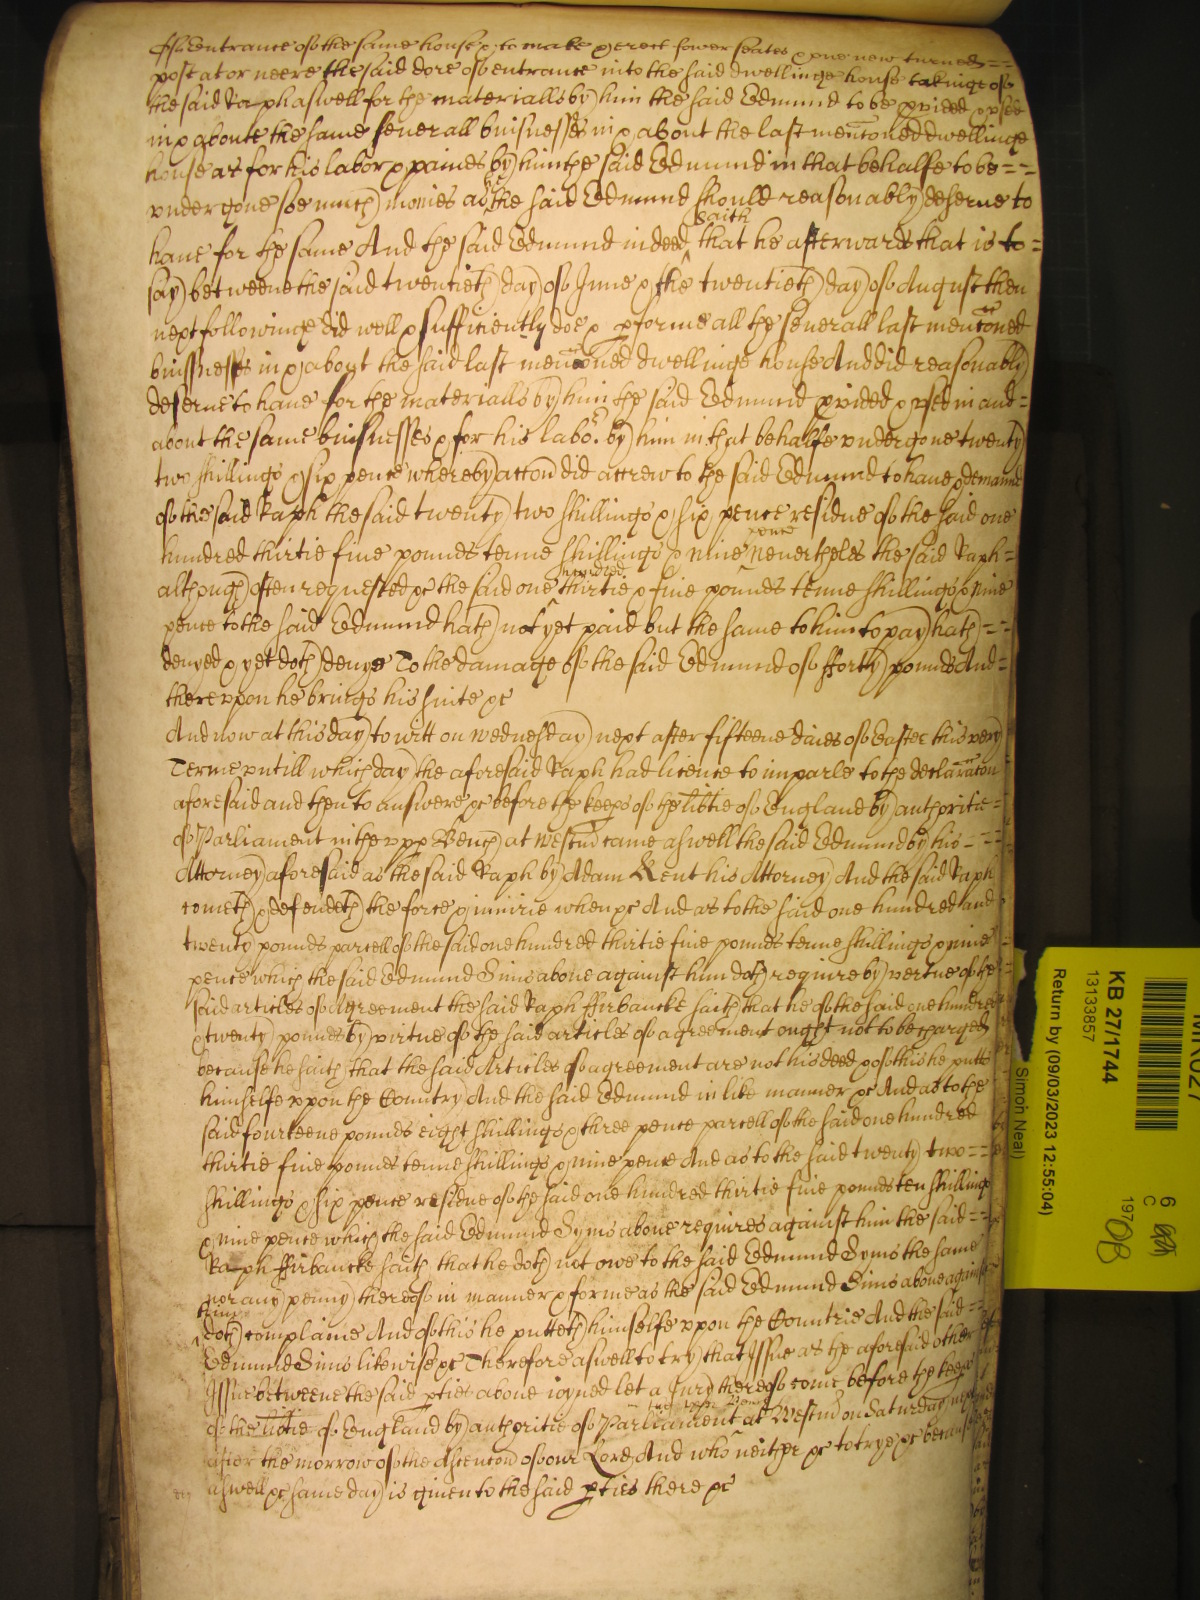 Entrance of the same house & to make & erect fower seates & one new turned
post at or neere the said dore of entrance into the said dwellinge house takinge of
the said Raph aswell for the materialls by him the said Edmund to be pvided & vsed
in & aboute the same severall buisnesses in & about the last mencõned dwellinge
house as for his labor & paines by him the said Edmund in that behalfe to be
vndergone soe much monies as the said Edmund should reasonably deserve to
have for the same And the said Edmund indeed saith that he afterwards that is to
say betweene the said twentieth day of June & the twentieth day of August then
next followinge did well & sufficiently doe & pforme all the severall last mencõned
buissnesses in & about the said last mencõned dwellinge house And did reasonably
deserve to have for the materialls by him the said Edmund pvided & vsed in and
about the same buisnesses & for his labor by him in that behalfe vndergone twenty
two shillings & six pence whereby accon did accrew to the said Edmund to have & demannd
of the said Raph the said twenty two shillings & six pence residue of the said one
hundred thirtie five pounds tenne shillings & nine pence nevertheles the said Raph
although often requested &c the said one hundred thirtie & five pounds tenne shillings & nine
pence to the said Edmund hath not yet paid but the same to him to pay hath
denyed & yet doth denye To the damage of the said Edmund of fforty pounds And
therevpon he brings his suite &c
And now at this day to witt on Wednesday next after fifteene daies of Easter this very
Terme vntill which day the aforesaid Raph had licence to imparle to the declaracon
aforesaid and then to answere &c before the keeps of the libtie of England by authoritie
of Parliament in the vpp Bench at Westm came aswell the said Edmund by his
Attorney aforesaid as the said Raph by Adam Kent his Attorney And the said Raph
cometh & defendeth the force & iniurie when &c And as to the said one hundred and
twenty pounds parcell of the said one hundred thirtie five pounds tenne shillings & nine
pence which the said Edmund Sims above against him doth require by vertue of the
said articles of Agreement the said Raph ffirbancke saith that he of the said one hundred
& twenty pounds by virtue of the said articles of agreement ought not to be charged
because he saith that the said Articles of agreement are not his deed & of this he putts
himselfe vpon the Countrey And the said Edmund in like manner &c And as to the
said fourteene pounds eight shillings & three pence parcell of the said one hundred
thirtie five pounds tenne shillings & nine pence And as to the said twenty two
shillings & six pence residue of the said one hundred thirtie five pounds ten shillings
& nine pence which the said Edmund Syms above requires against him the said
Raph ffirbancke saith that he doth not owe to the said Edmund Syms the same
nor any penny thereof in manner & forme as the said Edmund Sims above against
him
doth complaine And of this he putteth himselfe vpon the Countrie And the said
Edmund Sims likewise &c Therefore aswell to try that Issue as the aforesaid other
Issue betweene the said pties above ioyned let a Jury thereof come before the keeps
of the libtie of England by authoritie of Parliament at Westm on Saturday next
after the morrow of the Ascencon of our Lord And who neither &c to trye &c because
aswell &c same day is given to the said pties there &c
KB 27/1744
13133857
Return by (09/03/2023 12:55:04)
Simon Neal)
6
C